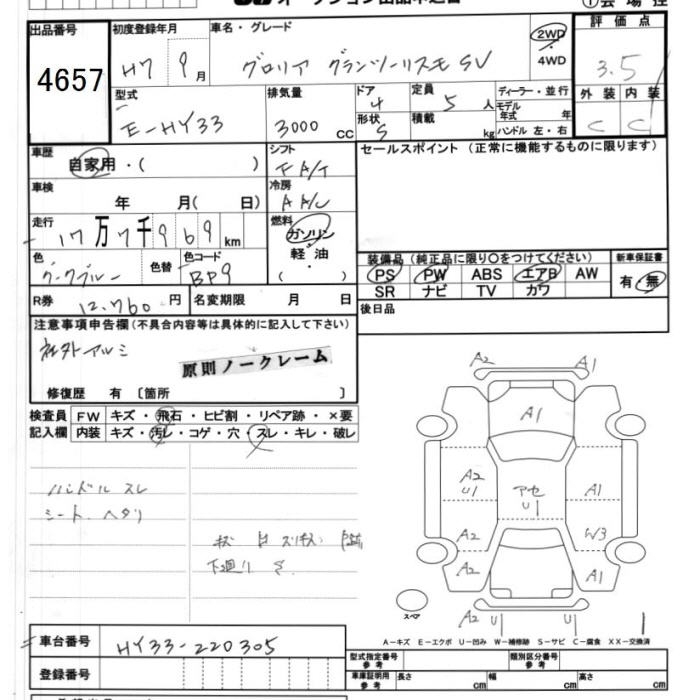 オークション出品申込書
①会場控
出品番号 4657
初度登録年月 H7 9月
車名・グレード グロリア グランツーリスモ SV
2WD・4WD
評価点 3.5
外装 C 内装 C
型式 E-HY33
排気量 3000 CC
ドア 4
形状 S
定員 5人
積載 kg
ディーラー・並行
モデル年式 年
ハンドル 左・右
車歴 自家用・( )
シフト F A/T
セールスポイント(正常に機能するものに限ります)
車検 年 月( 日)
冷房 A A/C
走行 17万7千969km
燃料 ガソリン・軽油・( )
色 ダークブルー 色替 色コード BP9
装備品(純正品に限り○をつけてください)
PS PW ABS エアB AW
SR ナビ TV カワ
新車保証書 有・無
R券 12,760円
名変期限 月 日
後日品
注意事項申告欄(不具合内容等は具体的に記入して下さい)
社外アルミ
原則ノークレーム
修復歴 有〔箇所 〕
検査員記入欄
FW キズ・飛石・ヒビ割・リペア跡・×要
内装 キズ・汚レ・コゲ・穴・スレ・キレ・破レ
ハンドル スレ
シート ヘタリ
下廻り サ
A2 A1
A1
A2 U1 アセ U1 A1
A2 W3
A2 A1
スペア
A2 U1 U1 1
A-キズ E-エクボ U-凹み W-補修跡 S-サビ C-腐食 XX-交換済
車台番号 HY33-220305
登録番号
型式指定番号 参考
類別区分番号 参考
車庫証明用 参考 長さ cm 幅 cm 高さ cm